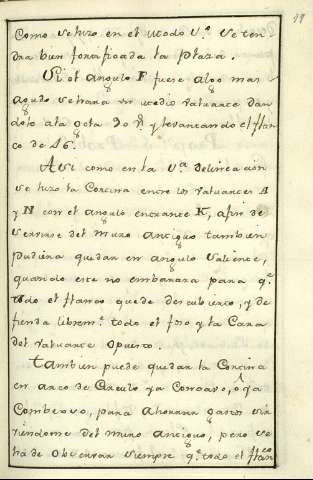 99
Como se hizo en el modo V.ª se ten
dra bien fortificada la plaza.
Si el angulo F fuere algo mas
agudo se hara un medio valuarte dan
dole ala gola 30 y levantando el flan
co de 16.
Asi como en la V.ª delineacion
se hizo la Cortina entre los valuartes A
y N con el angulo entrante K, afin de
servirse del muro Antiguo tambien
pudiera quedar en angulo saliente,
quando este no embarara para q.e
todo el flanco quede descubierto, y de
fienda librem.te todo el foso y la Cara
del valuarte opuesto.
Tambien puede quedar la Cortina
en arco de Circulo ya Concavo, ò ya
Combexo, para ahorrar gastos sir
viendome del muro Antiguo, pero se
ha de observar siempre q.e todo el flanco